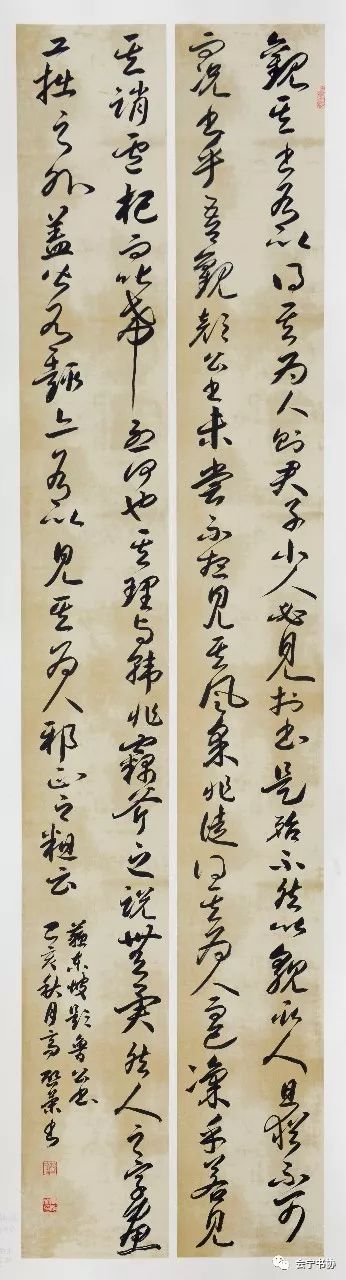 觀其書有以得其為人則君子小人必見於書是殆不然以貌取人且猶不可
而況書乎吾觀顏公書未嘗不想見其風采非徒得其為人而已凜乎若見
其誚盧杞而叱希烈何也其理與韓非竊斧之說無異然人之字畫
工拙之外蓋皆有趣亦有以見其為人邪正之粗云
蘇東坡題魯公書
己亥秋月高書
会宁书协